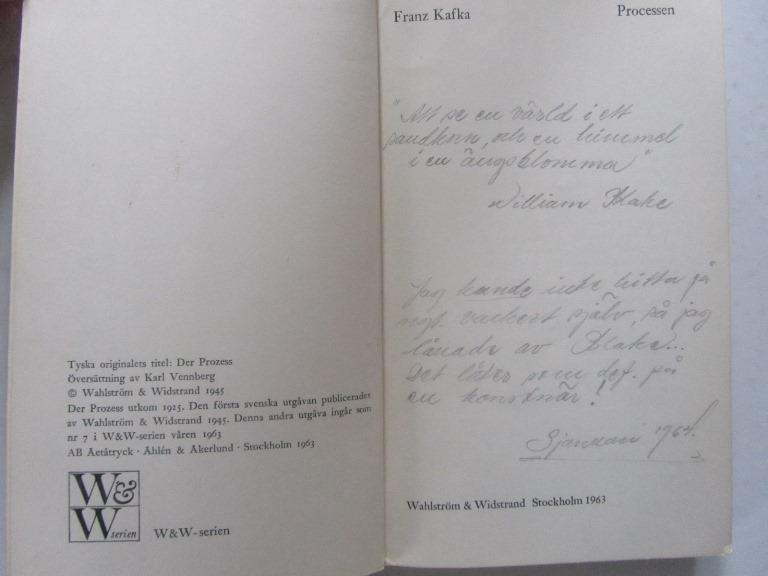 Tyska originalets titel: Der Prozess
Översättning av Karl Vennberg
© Wahlström & Widstrand 1945
Der Prozess utkom 1925. Den första svenska utgåvan publicerades
av Wahlström & Widstrand 1945. Denna andra utgåva ingår som
nr 7 i W&W-serien våren 1963
AB Aetåtryck · Åhlén & Åkerlund · Stockholm 1963
W&
W serien
W&W-serien
Franz Kafka Processen
"Att se en värld i ett
sandkorn, och en himmel
i en ängsblomma"
William Blake
Jag kunde inte hitta på
ngt. vackert själv, så jag
lånade av Blake...
Det låter som def. på
en konstnär!
januari 1964.
Wahlström & Widstrand Stockholm 1963